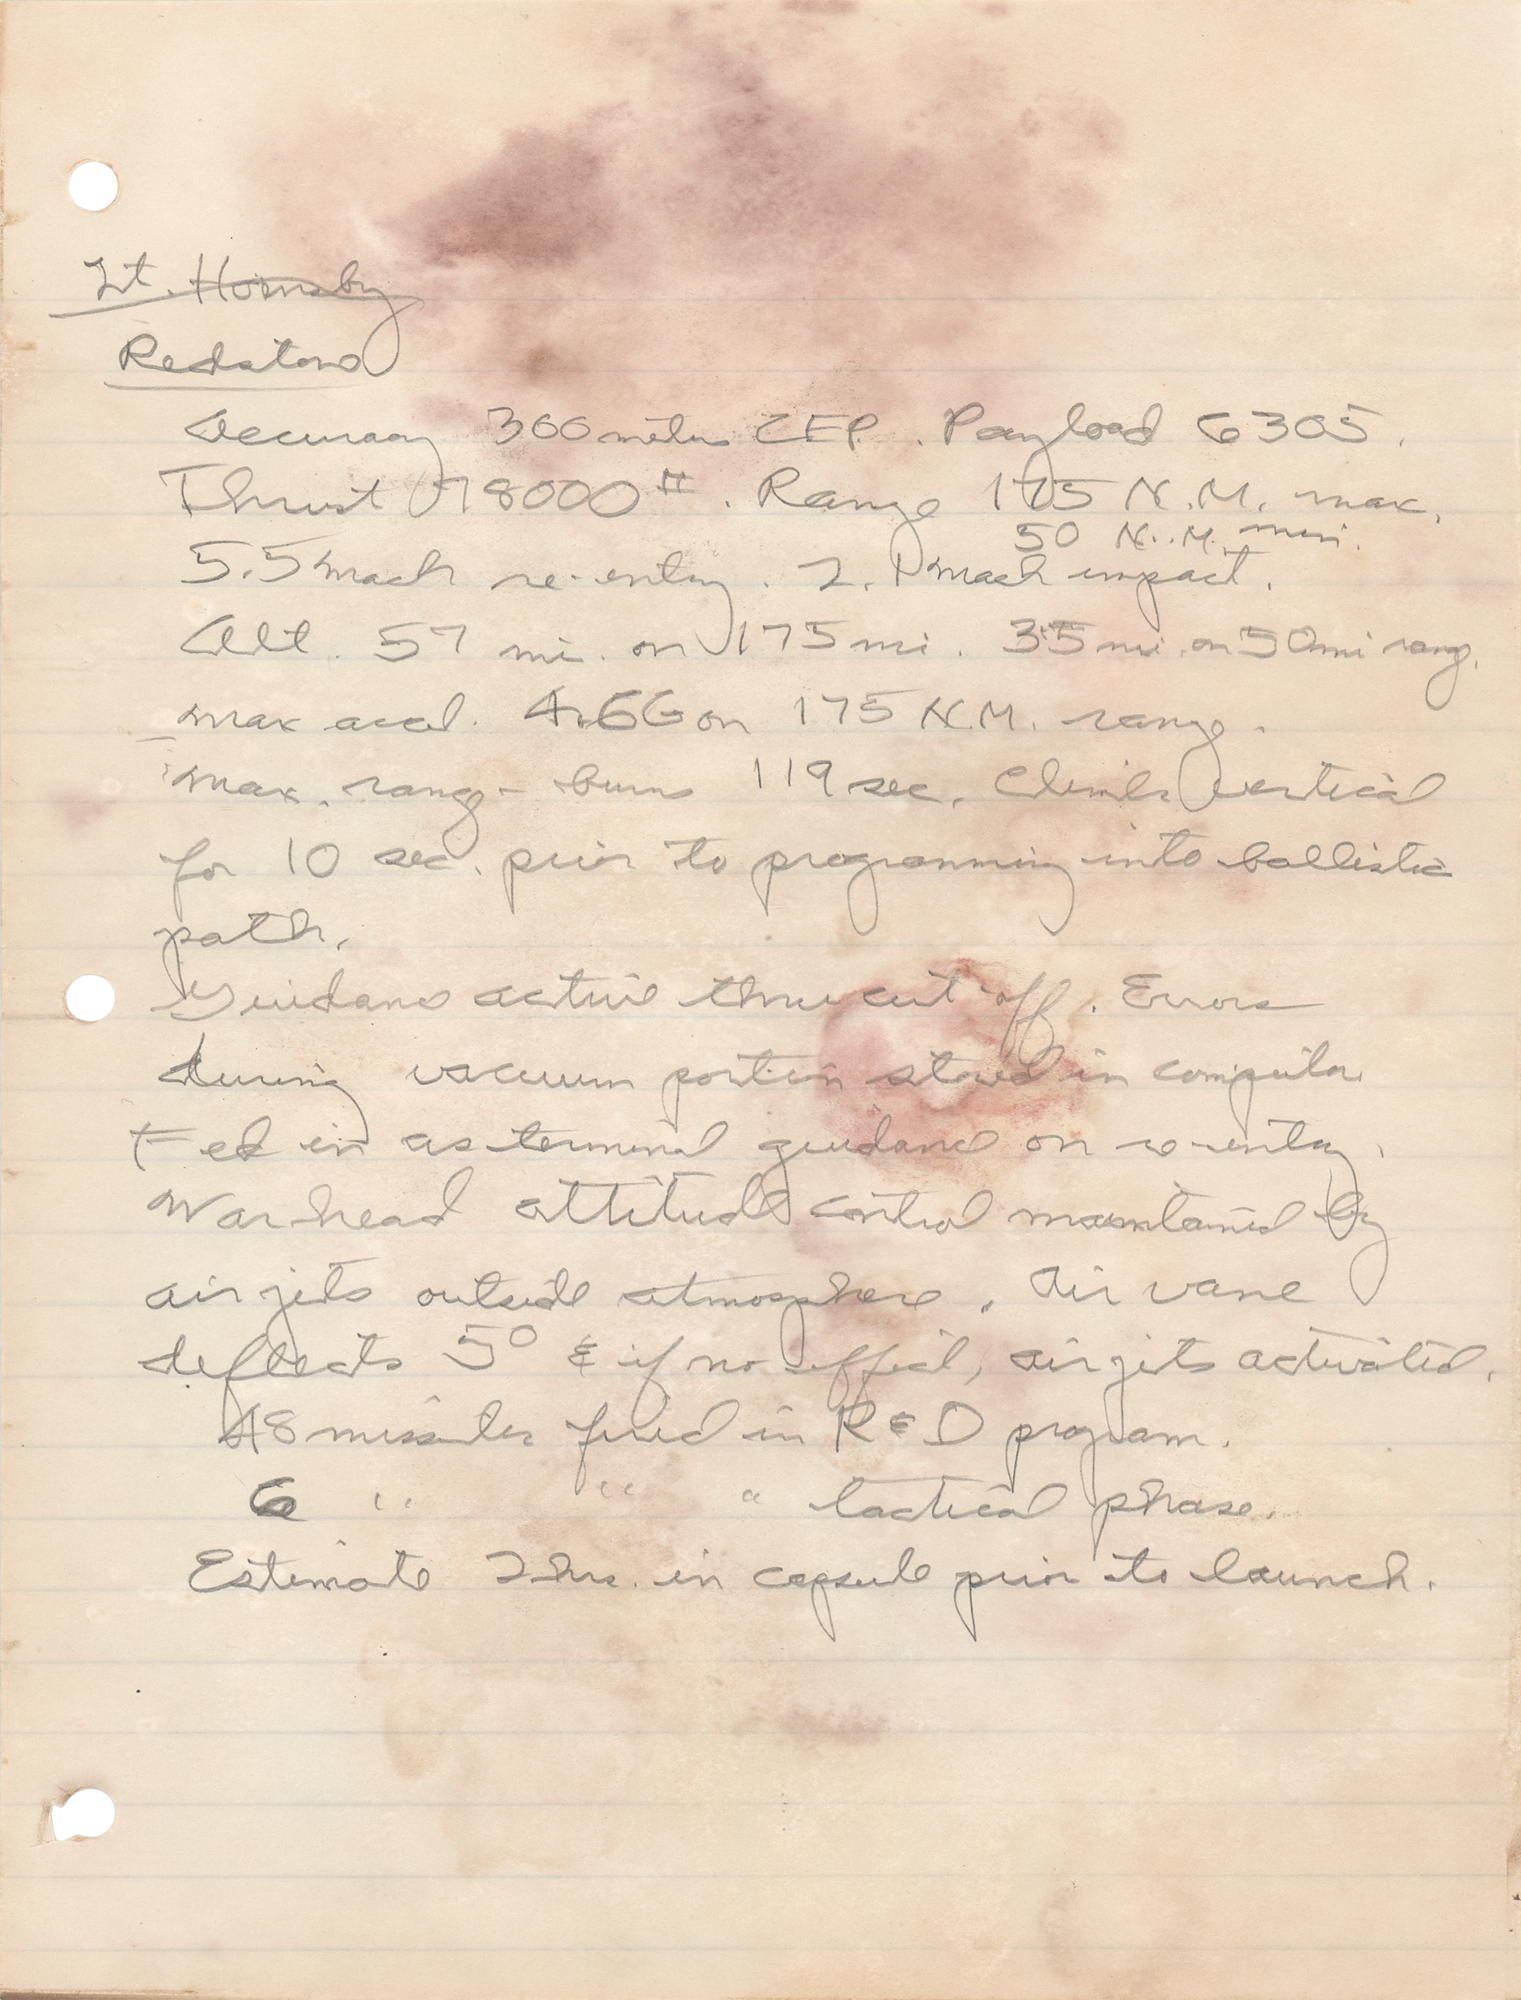 Lt. Hornsby
Redstone
Accuracy 300 meters CEP. Payload 6305.
Thrust 78000#. Range 175 N.M. max.
50 N.M. min.
5.5 mach re-entry. 2.1 mach impact.
Alt. 57 mi. on 175 mi. 35 mi. on 50 mi rang.
max accel. 4.6G on 175 N.M. range.
max. range - burns 119 sec. Climbs vertical
for 10 sec. prior to programming into ballistic
path.
Guidance active thru cut off. Errors
during vacuum portion stored in computer
+ ed in as terminal guidance on re-entry.
Warhead attitude control maintained by
air jets outside atmosphere. Air vane
deflects 5° & if no effect, air jets activated.
48 missiles fired in R & D program.
6 " " " tactical phase.
Estimate 2 hrs. in capsule prior to launch.